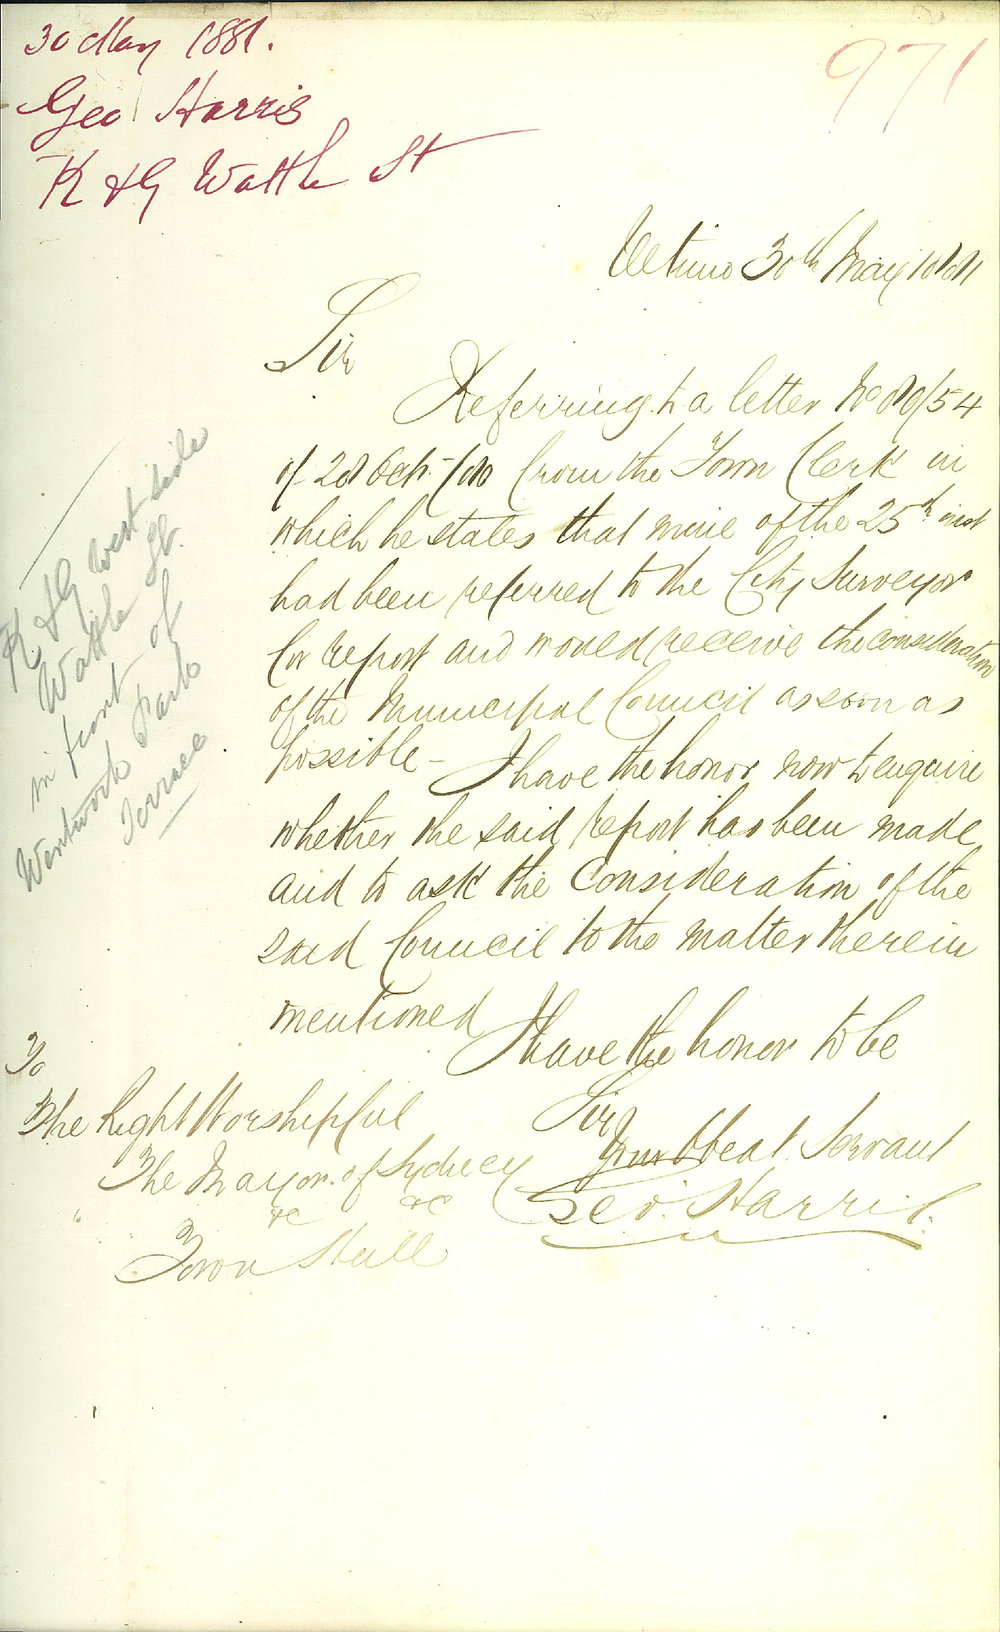 30 May 1881.
Geo Harris
K & G Wattle St
971
Ultimo 30th May 1881
Sir
Referring to a letter No 89/54
of 28 Oct /80 from the Town Clerk in
which he states that mine of the 25th inst
had been referred to the City Surveyor
for report and would receive the consideration
of the Municipal Council as soon as
possible - I have the honor now to enquire
whether the said report has been made
and to ask the Consideration of the
said Council to the matter therein
mentioned
I have the honor to be
Sir
Your Obeat. Servant
Geo. Harris.
To
The Right Worshipful
The Mayor of Sydney
&c &c
Town Hall
K & G West side
Wattle St.
in front of
Wentworth Park
Terrace